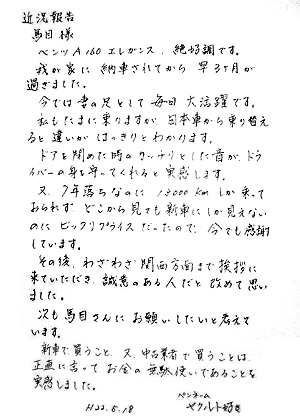 近況報告
馬目様
ベンツA160エレガンス、絶好調です。
我が家に納車されてから早3ヶ月が
過ぎました。
今では妻の足として毎日大活躍です。
私もたまに乗りますが、日本車から乗り替え
ると違いがはっきりとわかります。
ドアを閉めた時のガッチリとした音が、ドラ
イバーの身を守ってくれると実感します。
又、7年落ちなのに18000kmしか乗って
おられず、どこから見ても新車にしか見えない
のにビックリプライスだったので、今でも感謝
しています。
その後、わざわざ関西方面まで挨拶に
来ていただき、誠意のある人だと改めて思い
ました。
次も馬目さんにお願いしたいと考えて
います。
新車で買うこと、又、中古業者で買うことは、
正直に言ってお金の無駄使いであることを
実感しました。
H22.5.18
ペンネーム
ヤクルト好き